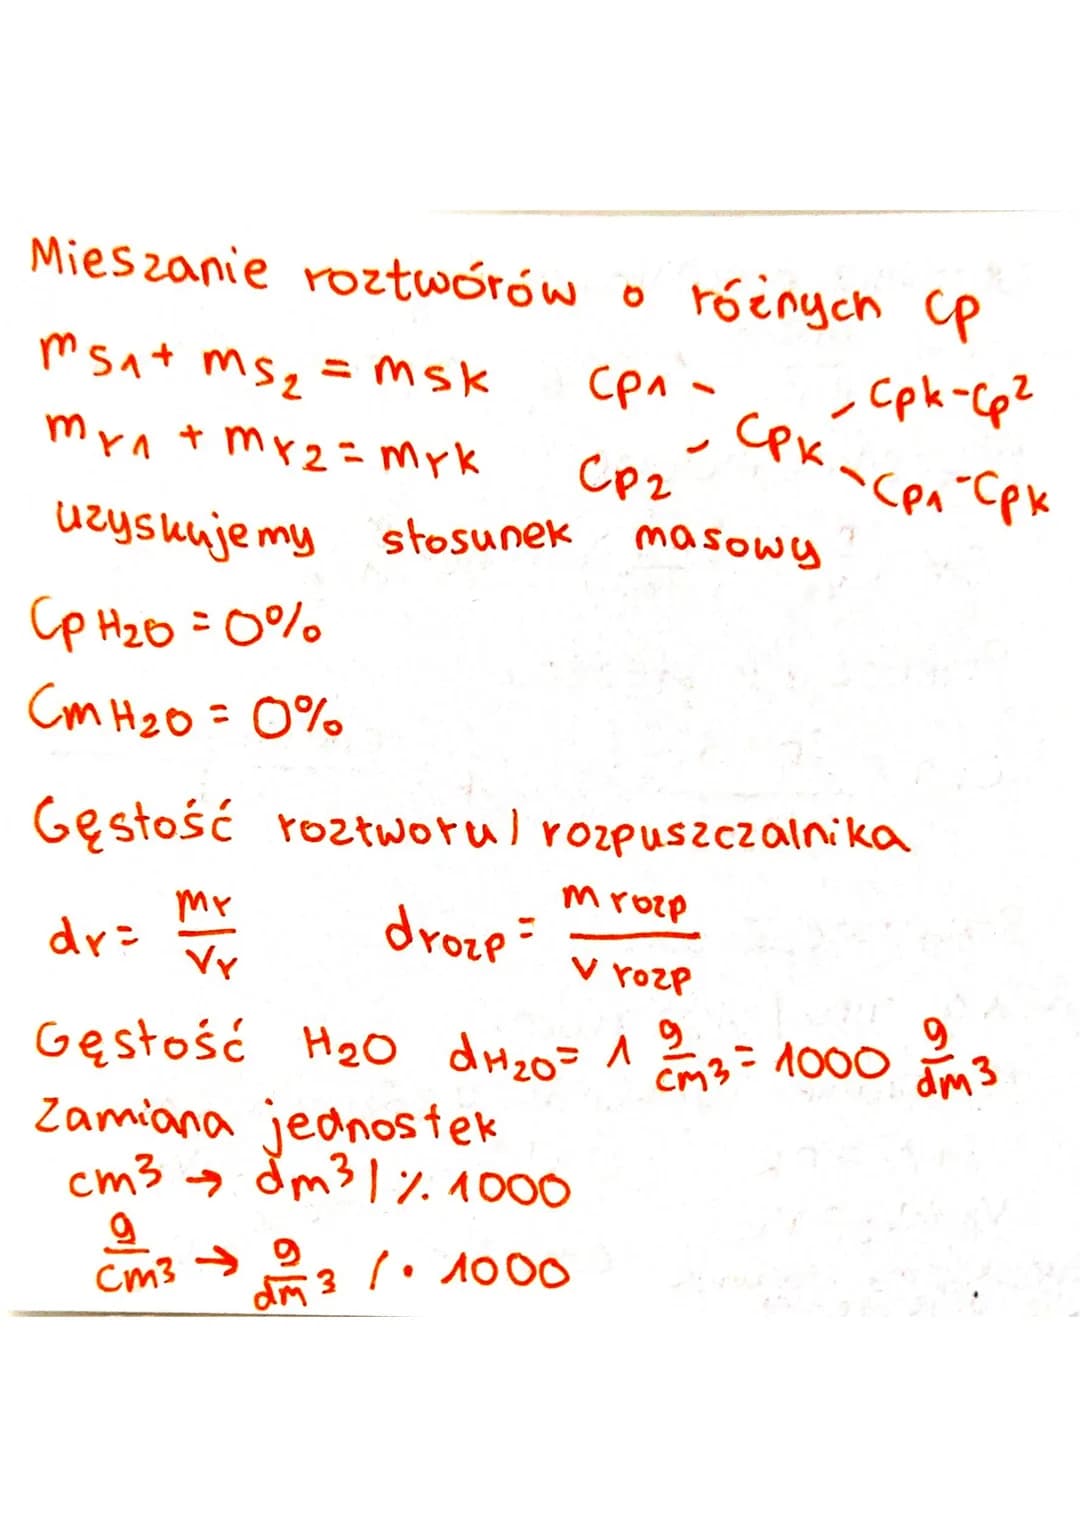 Mieszanie roztwórów o różnych cp
ms1 + ms2 = msk
cp1 - cpk - cpk-cp2
mr1 + mr2 = mrk
cp2 - cp1-cpk
uzyskujemy stosunek masowy
Cp H2O = 0%
Cm H2O = 0%
Gęstość roztworu / rozpuszczalnika
dr = mr / Vr
drozp = m rozp / v rozp
Gęstość H2O dH2O = 1 g/cm3 = 1000 g/dm3
Zamiana jednostek
cm3 → dm3 / % 1000
g/cm3 → g/dm3 / · 1000